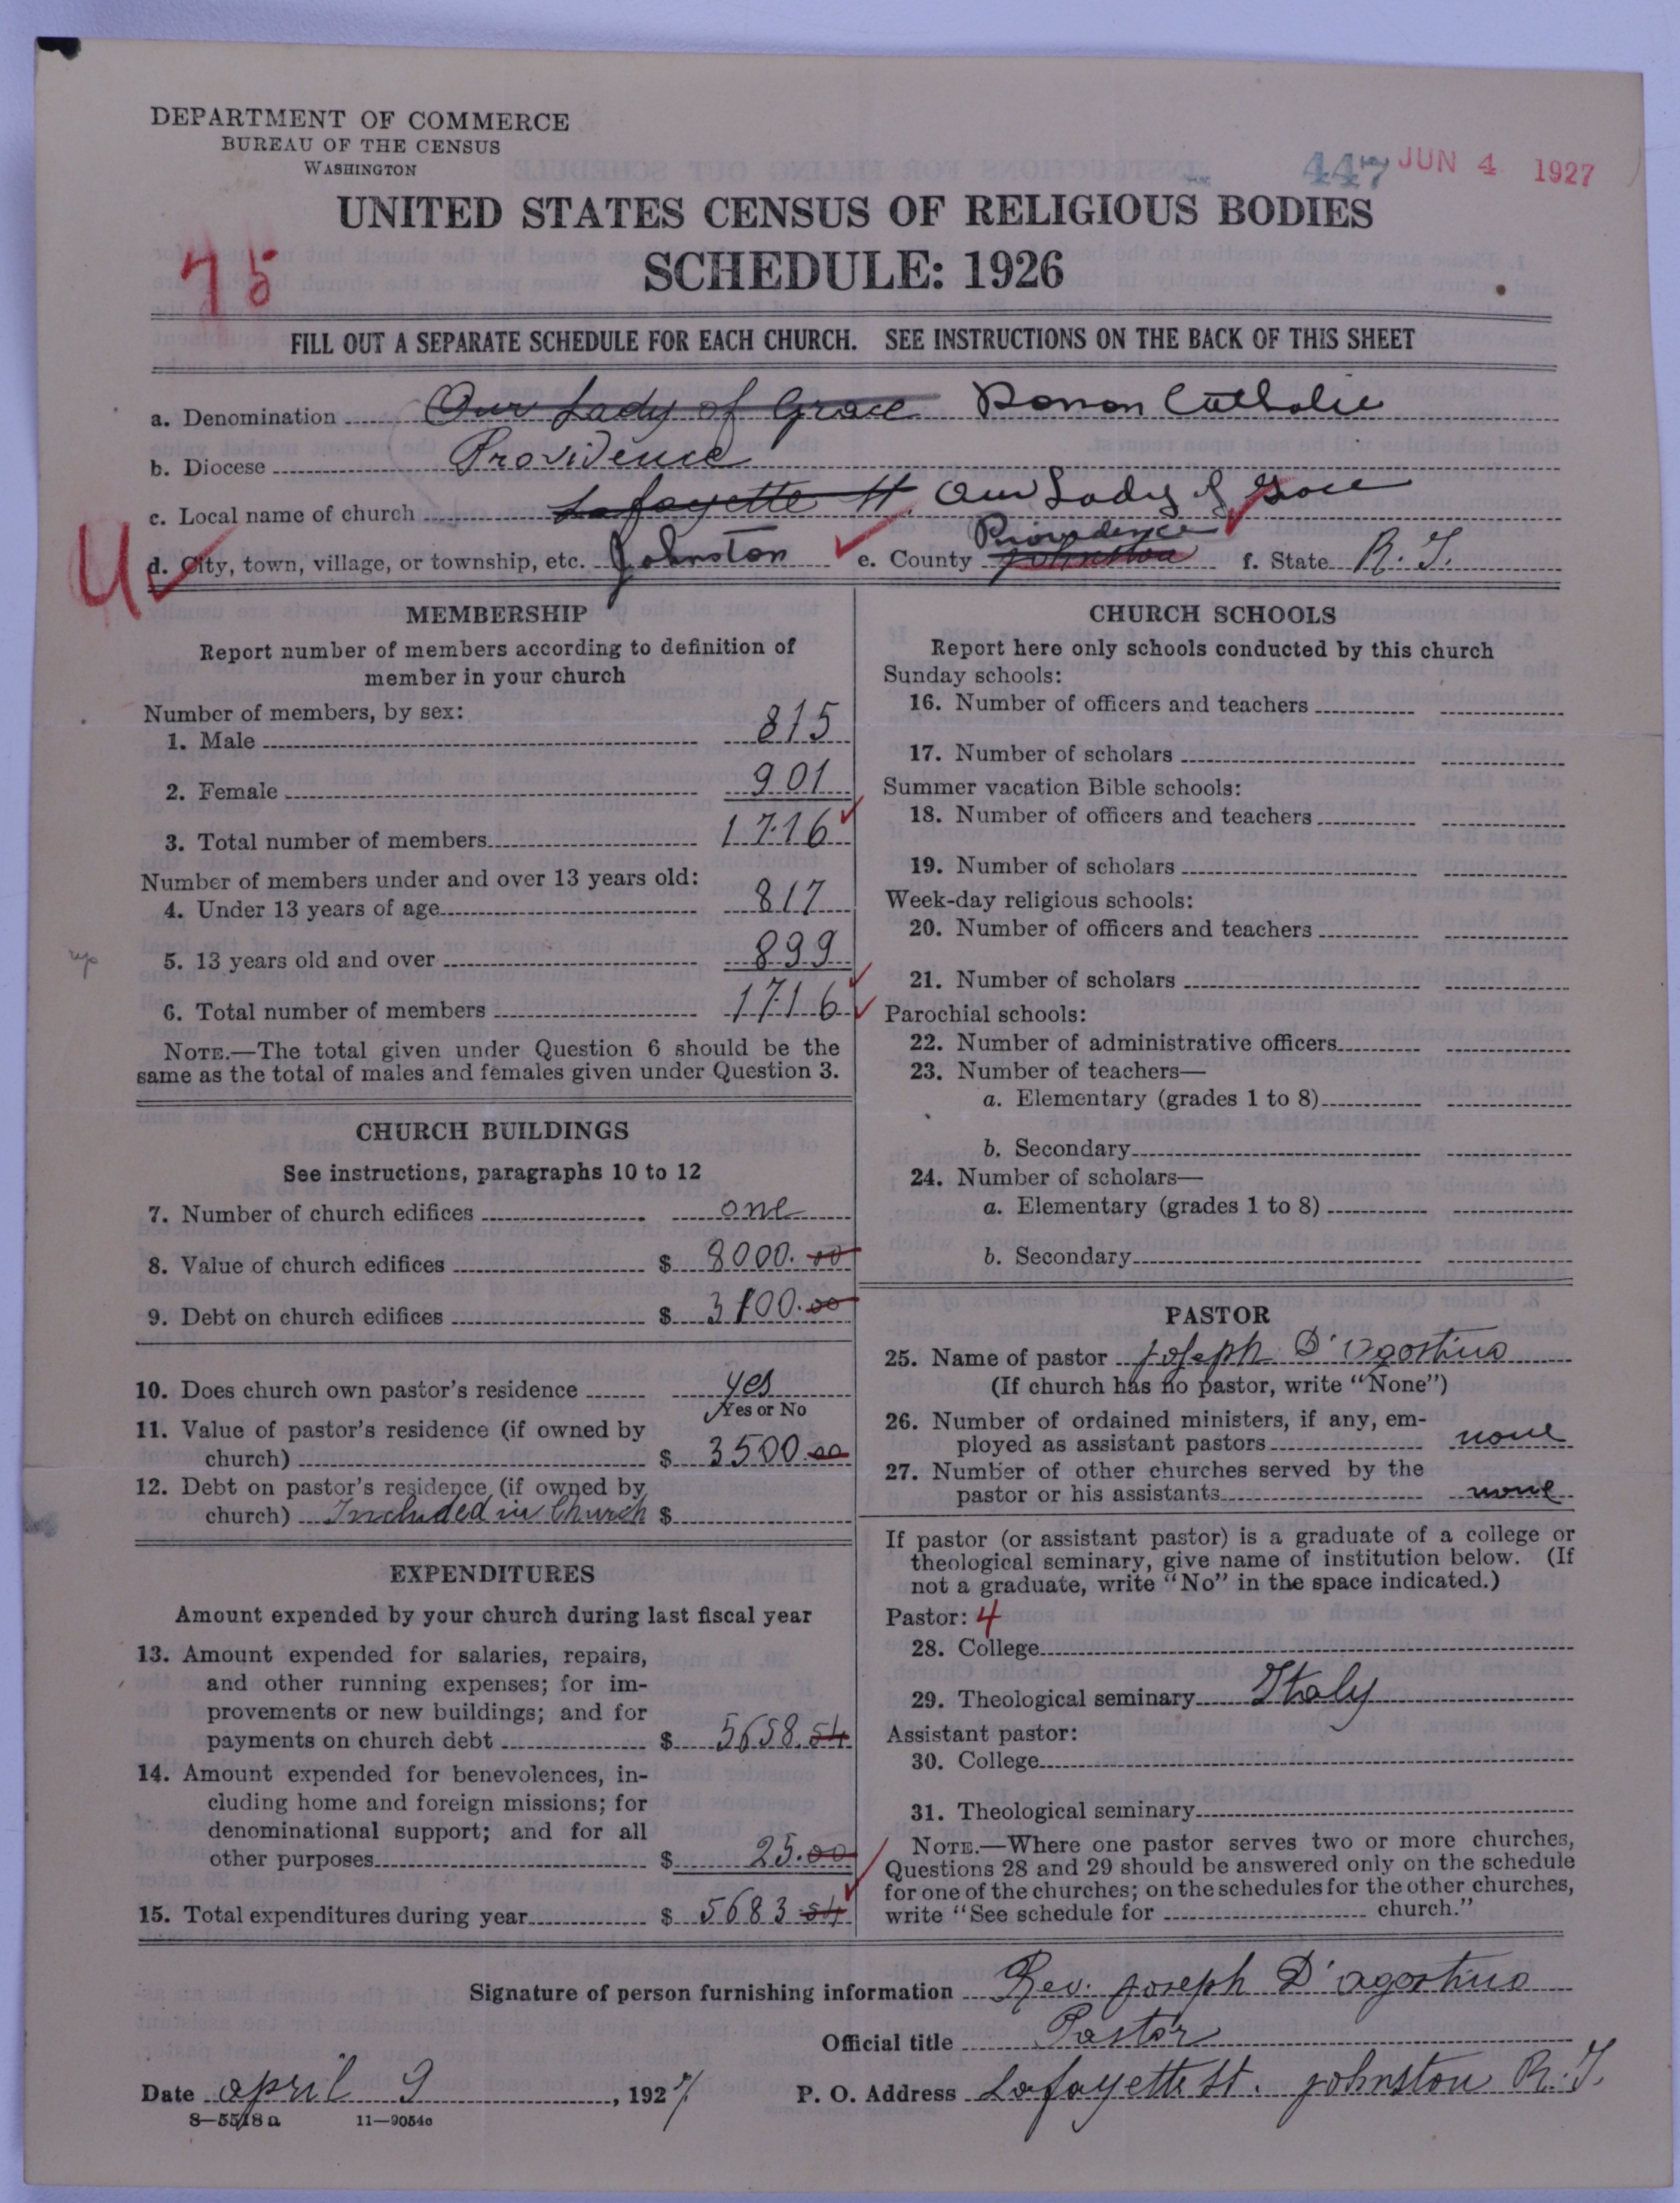 DEPARTMENT OF COMMERCE
BUREAU OF THE CENSUS
WASHINGTON
447 JUN 4 1927
UNITED STATES CENSUS OF RELIGIOUS BODIES
SCHEDULE: 1926
75
FILL OUT A SEPARATE SCHEDULE FOR EACH CHURCH. SEE INSTRUCTIONS ON THE BACK OF THIS SHEET
a. Denomination Our Lady of Grace Roman Catholic
b. Diocese Providence
c. Local name of church Lafayette St. Our Lady of Grace
Providence
d. City, town, village, or township, etc. Johnston e. County Johnston f. State R. I.
MEMBERSHIP
Report number of members according to definition of
member in your church
Number of members, by sex:
1. Male 815
2. Female 901
3. Total number of members 1716
Number of members under and over 13 years old:
4. Under 13 years of age 817
5. 13 years old and over 899
6. Total number of members 1716
NOTE.—The total given under Question 6 should be the
same as the total of males and females given under Question 3.
CHURCH BUILDINGS
See instructions, paragraphs 10 to 12
7. Number of church edifices one
8. Value of church edifices $ 8000.00
9. Debt on church edifices $ 3100.00
10. Does church own pastor's residence yes
Yes or No
11. Value of pastor's residence (if owned by
church) $ 3500.00
12. Debt on pastor's residence (if owned by
church) Included in Church $
EXPENDITURES
Amount expended by your church during last fiscal year
13. Amount expended for salaries, repairs,
and other running expenses; for im-
provements or new buildings; and for
payments on church debt $ 5658.54
14. Amount expended for benevolences, in-
cluding home and foreign missions; for
denominational support; and for all
other purposes $ 25.00
15. Total expenditures during year $ 5683.54
CHURCH SCHOOLS
Report here only schools conducted by this church
Sunday schools:
16. Number of officers and teachers
17. Number of scholars
Summer vacation Bible schools:
18. Number of officers and teachers
19. Number of scholars
Week-day religious schools:
20. Number of officers and teachers
21. Number of scholars
Parochial schools:
22. Number of administrative officers
23. Number of teachers—
a. Elementary (grades 1 to 8)
b. Secondary
24. Number of scholars—
a. Elementary (grades 1 to 8)
b. Secondary
PASTOR
25. Name of pastor Joseph D'Agostino
(If church has no pastor, write "None")
26. Number of ordained ministers, if any, em-
ployed as assistant pastors none
27. Number of other churches served by the
pastor or his assistants none
If pastor (or assistant pastor) is a graduate of a college or
theological seminary, give name of institution below. (If
not a graduate, write "No" in the space indicated.)
Pastor: 4
28. College
29. Theological seminary Italy
Assistant pastor:
30. College
31. Theological seminary
NOTE.—Where one pastor serves two or more churches,
Questions 28 and 29 should be answered only on the schedule
for one of the churches; on the schedules for the other churches,
write "See schedule for church."
Signature of person furnishing information Rev. Joseph D'Agostino
Official title Pastor
Date April 9, 1927 P. O. Address Lafayette St. Johnston R. I.
8—5518 a 11—9054c